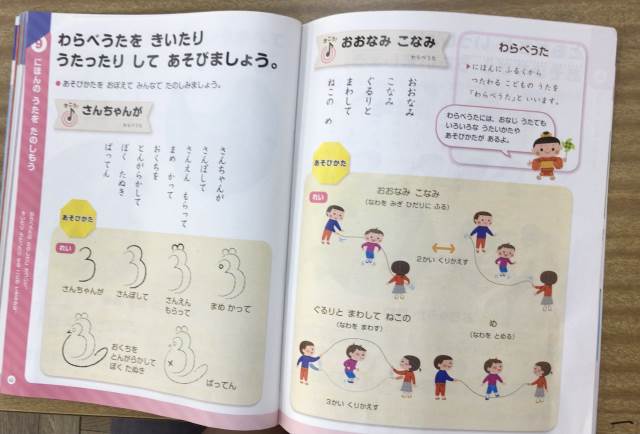 9 にほんの うたを たのしもう
わらべうたを きいたり
うたったり して あそびましょう。
●あそびかたを おぼえて みんなで たのしみましょう。
さんちゃんが
わらべうた
さんちゃんが
さんぽして
さんえん もらって
まめ かって
おくちを
とんがらかして
ぼく たぬき
ばってん
あそびかた
れい
さんちゃんが
さんぽして
さんえん
もらって
まめ かって
おくちを
とんがらかして
ぼく たぬき
ばってん
おおなみ こなみ
わらべうた
おおなみ
こなみ
ぐるりと
まわして
ねこの め
わらべうた
▶にほんに ふるくから
つたわる こどもの うたを
「わらべうた」と いいます。
わらべうたには、おなじ うたでも
いろいろな うたいかたや
あそびかたが あるよ。
あそびかた
れい
おおなみ こなみ
(なわを みぎ ひだりに ふる)
2かい くりかえす
ぐるりと まわして ねこの
(なわを まわす)
3かい くりかえす
め
(なわを とめる)